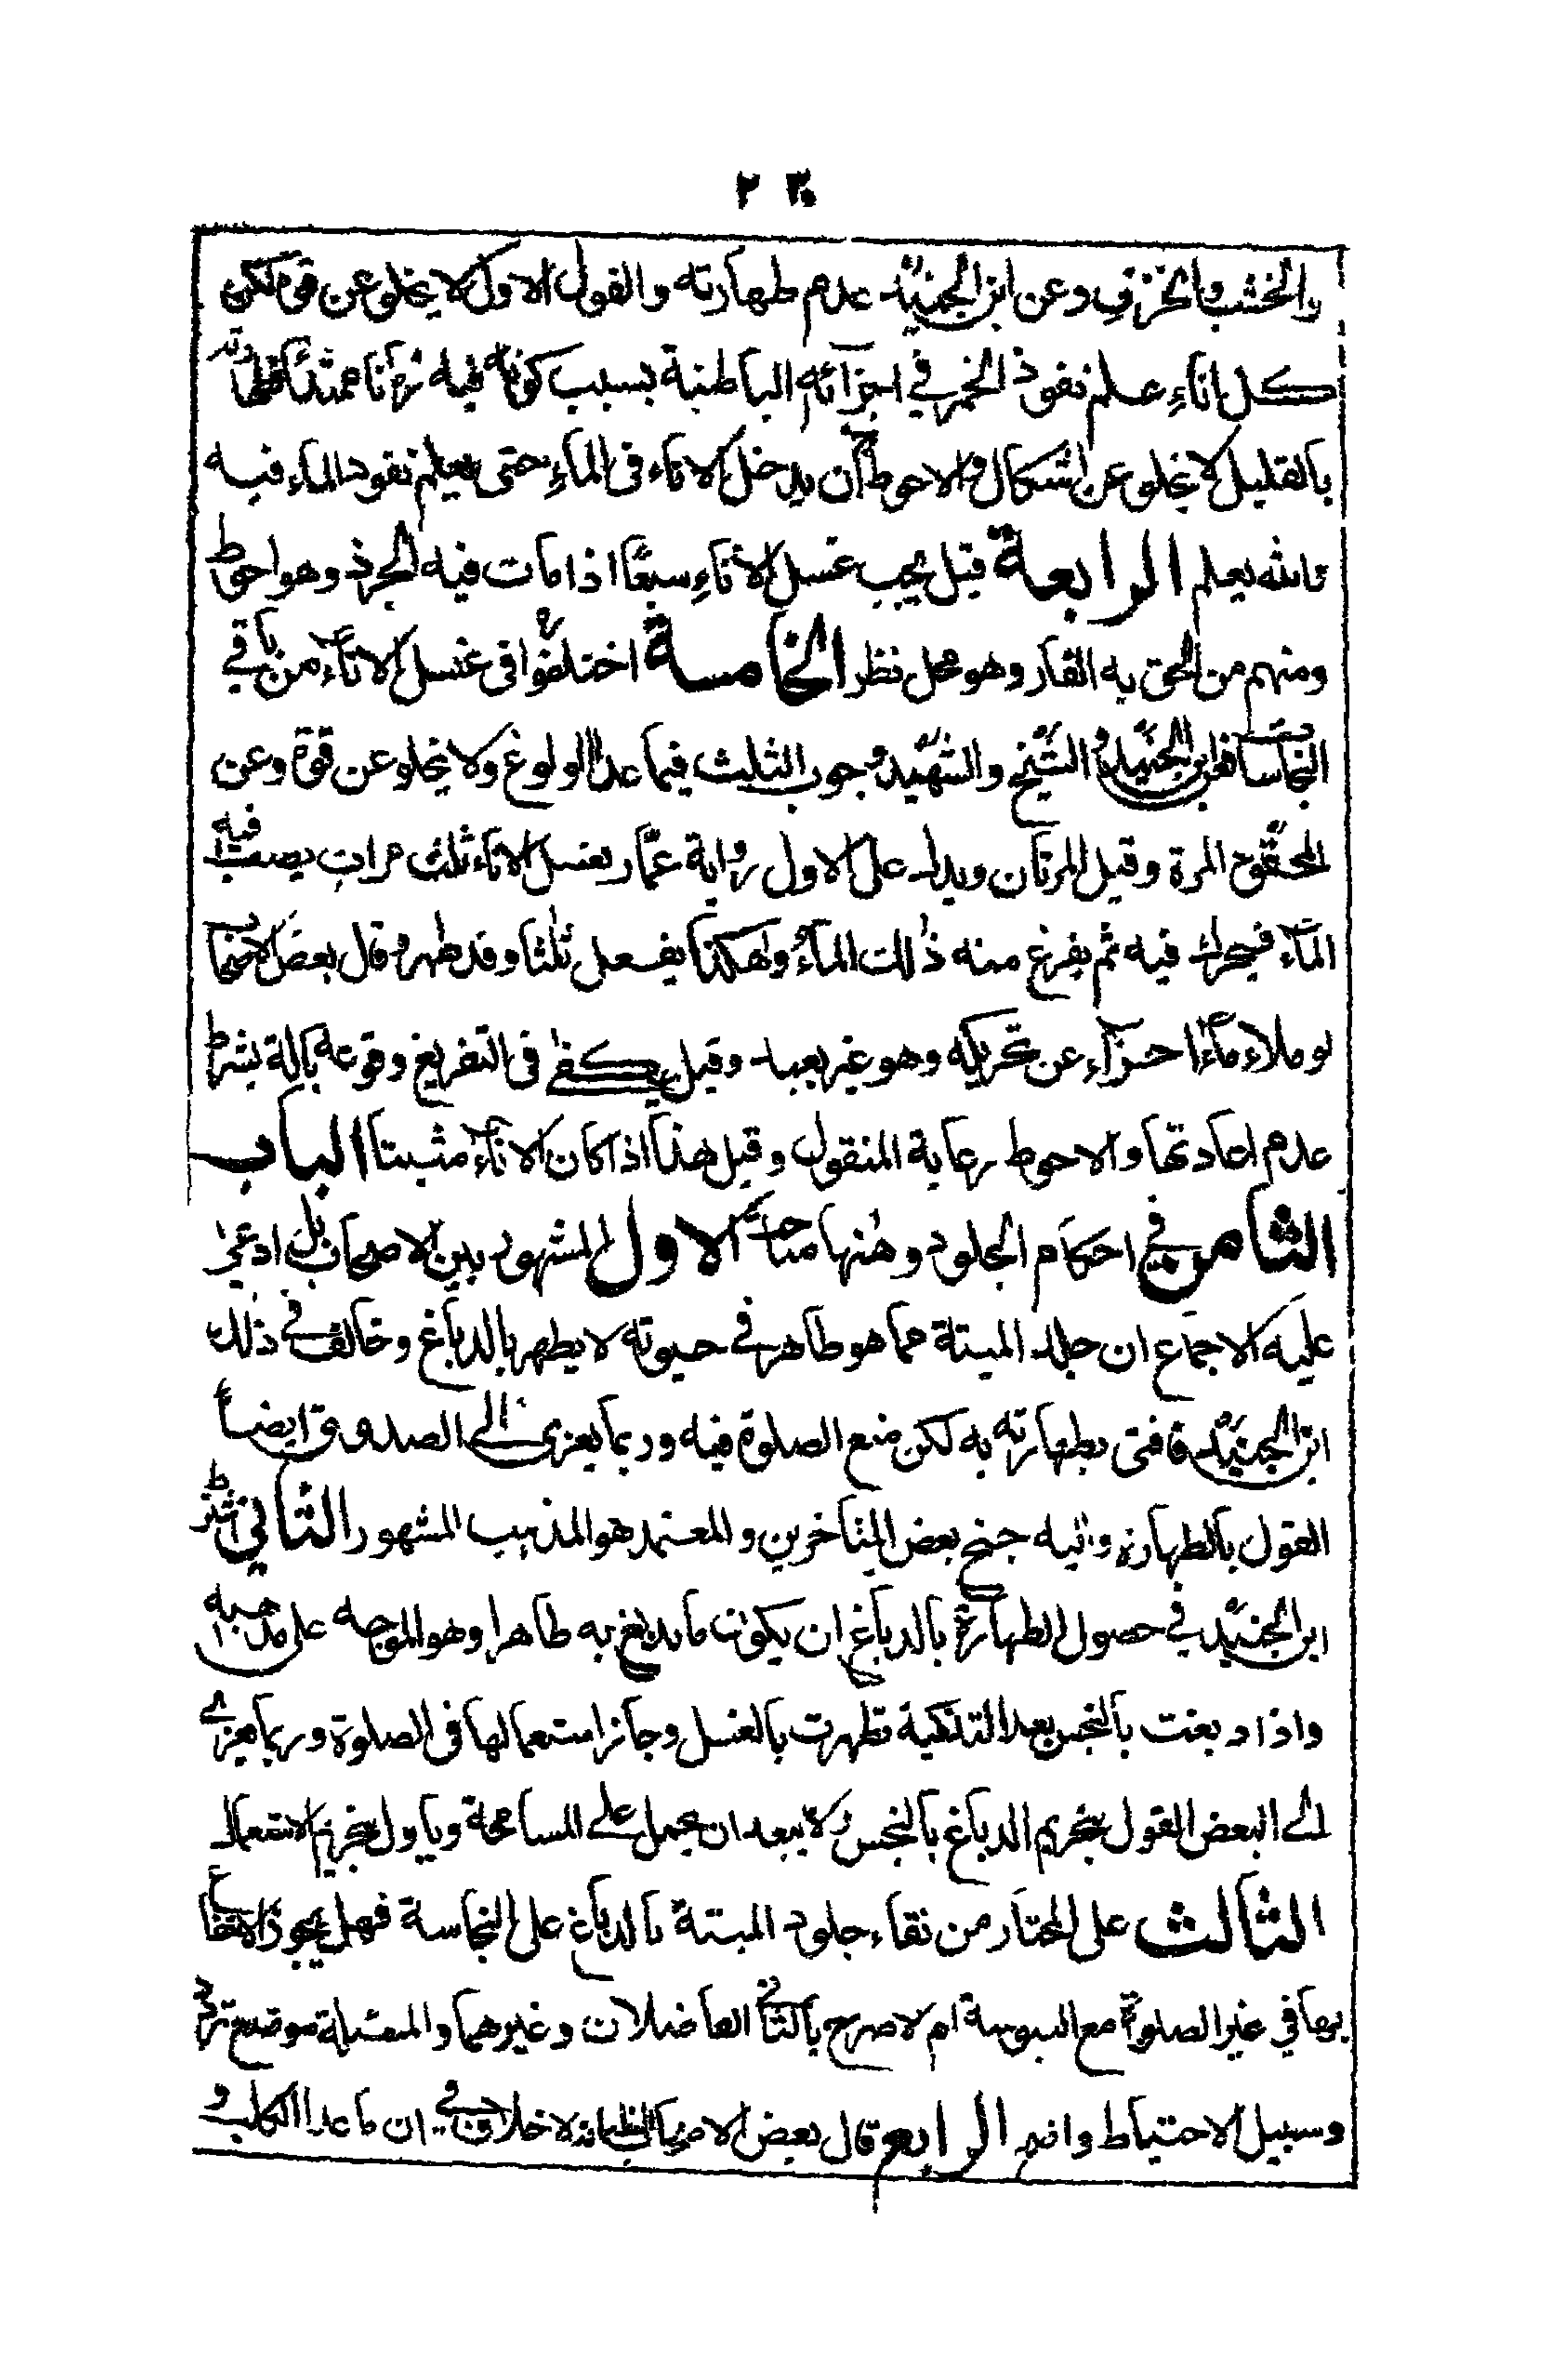 ٢٣
والخشب والخزف وعن ابن الجنيد عدم طهارته والقول الاول لا يخلو عن قوة لكن
كل اناء علم نفوذ الخمر في اجزائه الباطنية بسبب كونه فيه زمانا ممتدا فتطهيره
بالقليل لا يخلو عن اشكال والاحوط ان يدخل الاناء فى الماء حتى يعلم نفوذ الماء فيه
والله يعلم الرابعة قيل يجب غسل الاناء سبعا اذا مات فيه الجرذ وهو احوط
ومنهم من الحق به الفار وهو محل نظر الخامسة اختلفوا فى غسل الاناء من باقي
النجاسات فابن الجنيد والشيخ والشهيد وجوب الثلث فيما عدا الولوغ ولا يخلو عن قوة وعن
المحقق المرة وقيل المرتان ويدل على الاول رواية عمار يغسل الاناء ثلث مرات يصب فيه
الماء فيحرك فيه ثم يفرغ منه ذلك الماء وهكذا يفعل ثلثا وقد طهر وقال بعض الاصحاب
لو ملاء ماءا اجزاء عن تحريكه وهو غير بعيد وقيل يكفى فى التفريغ وقوعه بالة بشرط
عدم اعادتها والاحوط رعاية المنقول وقيل هذا اذا كان الاناء مثبتا الباب
الثامن في احكام الجلود وهنها مباحث الاول المشهور بين الاصحاب بل ادعى
عليه الاجماع ان جلد الميتة مما هو طاهر في حيوته لا يطهر بالدباغ وخالف في ذلك
ابن الجنيد فافتى بطهارته به لكن منع الصلوة فيه وربما يعزى الى الصدوق ايضا
القول بالطهارة واليه جنح بعض المتاخرين والمعتمد هو المذهب المشهور الثاني شرط
ابن الجنيد في حصول الطهارة بالدباغ ان يكون ما يدبغ به طاهرا وهو الموجه على مذهبه
واذا دبغت بالنجس بعد التذكية تطهرت بالغسل وجاز استعمالها فى الصلوة وربما يعزى
الى البعض القول بتحريم الدباغ بالنجس ولا يبعد ان يحمل على المسامحة وياول بتحريم الاستعمال
الثالث على المختار من نقاء جلود الميتة بالدباغ على النجاسة فهل يجوز الانتفاع
بها في غير الصلوة مع اليبوسة ام لا صرح بالثاني الفاضلان وغيرهما والمسئلة موضع تردد
وسبيل الاحتياط واضح الرابع قال بعض الاصحاب الظاهر انه لا خلاف في ان ما عدا الكلب و